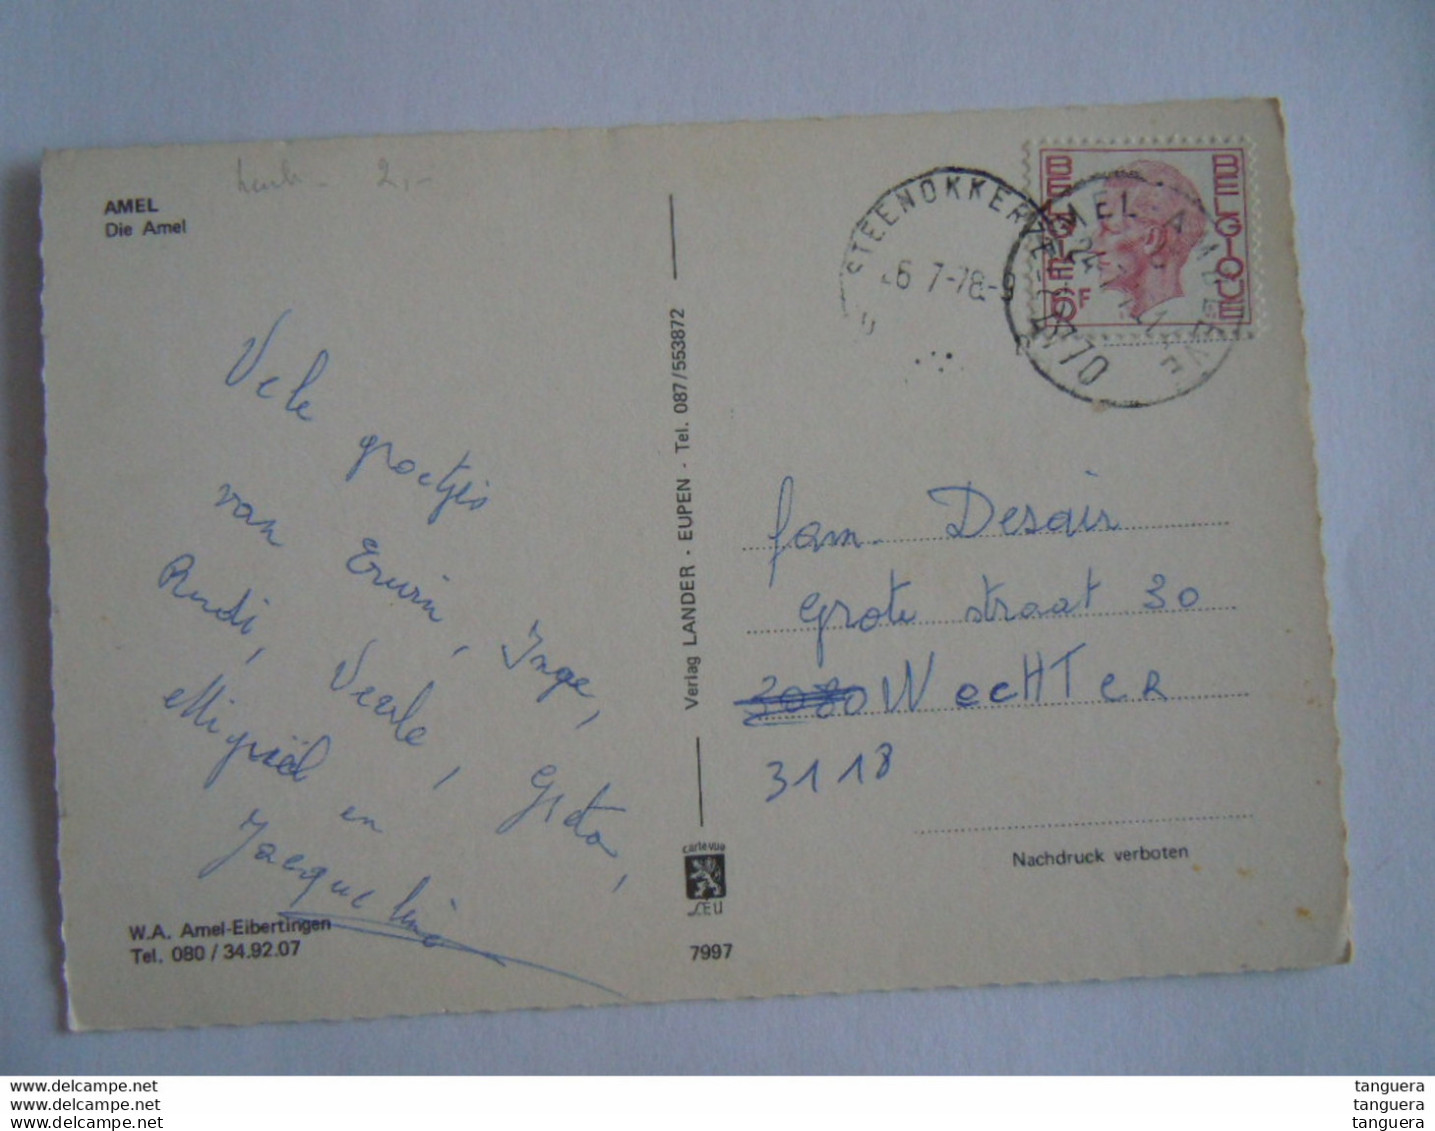 2,-
AMEL
Die Amel
Vele groetjes
van Erwin, Inge,
Rudi, Veerle, Greta,
Miguël en
Jacqueline
W.A. Amel-Eibertingen
Tel. 080 / 34.92.07
Verlag LANDER - EUPEN - Tel. 087/553872
carte vue
7997
STEENOKKERZEEL
26 7-78-9
AMEL-AMBLEVE
4770
BELGIE BELGIQUE
F
fam. Desair
Grote straat 30
3080 WecHTeR
3118
Nachdruck verboten
www.delcampe.net
www.delcampe.net
www.delcampe.net
tanguera
tanguera
tanguera